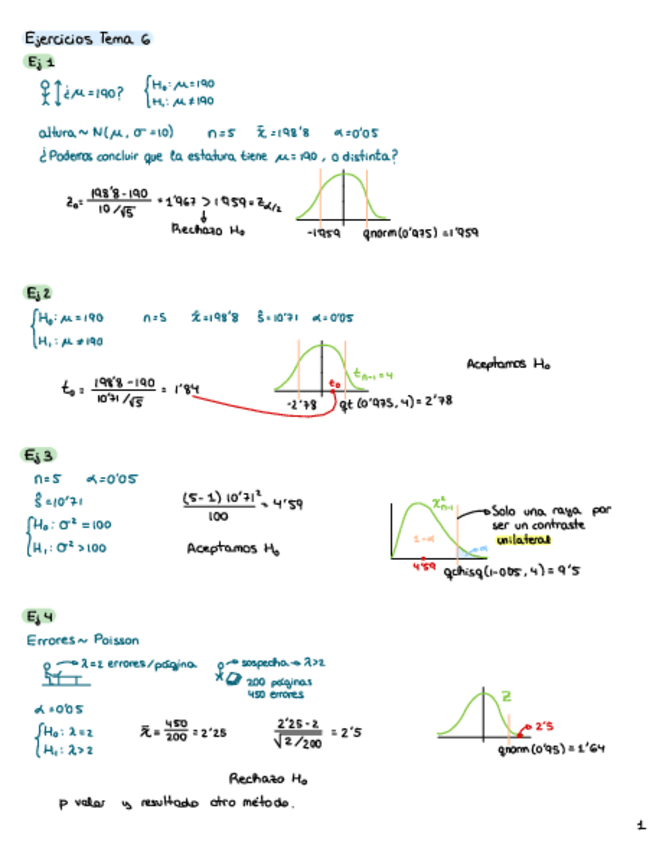 Ejercicios Tema 6
Ej 1
¿μ=190? { H₀: μ=190
H₁: μ≠190
altura ~ N(μ, σ=10) n=5 x̄=198'8 α=0'05
¿Podemos concluir que la estatura tiene μ=190, o distinta?
Z₀= (198'8-190)/(10/√5) = 1'967 > 1'959 = Z_α/2
Rechazo H₀
-1'959 qnorm(0'975)=1'959
Ej 2
{ H₀: μ=190 n=5 x̄=198'8 ŝ=10'71 α=0'05
H₁: μ≠190
Aceptamos H₀
t₀ = (198'8-190)/(10'71/√5) = 1'84
t₀ t_n-1=4
-2'78 qt(0'975, 4)=2'78
Ej 3
n=5 α=0'05
ŝ=10'71
(5-1) 10'71²/100 = 4'59
{ H₀: σ²=100
H₁: σ²>100
Aceptamos H₀
χ²_n-1
Solo una raya por
ser un contraste
unilateral
1-α α
4'59 qchisq(1-0'05, 4)=9'5
Ej 4
Errores ~ Poisson
λ=2 errores/página
sospecha → λ>2
200 páginas
450 errores
α=0'05
{ H₀: λ=2
H₁: λ>2
x̄ = 450/200 = 2'25
(2'25-2)/√(2/200) = 2'5
Z
2'5
qnorm(0'95)=1'64
Rechazo H₀
p valor y resultado otro método.
1